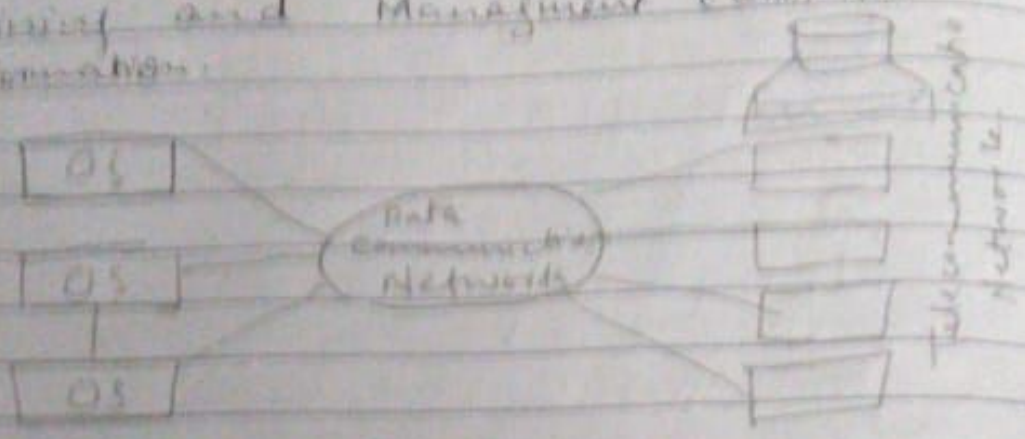 and Managment
OS
OS
OS
Data
communication
Networks
Telecommunication
Network